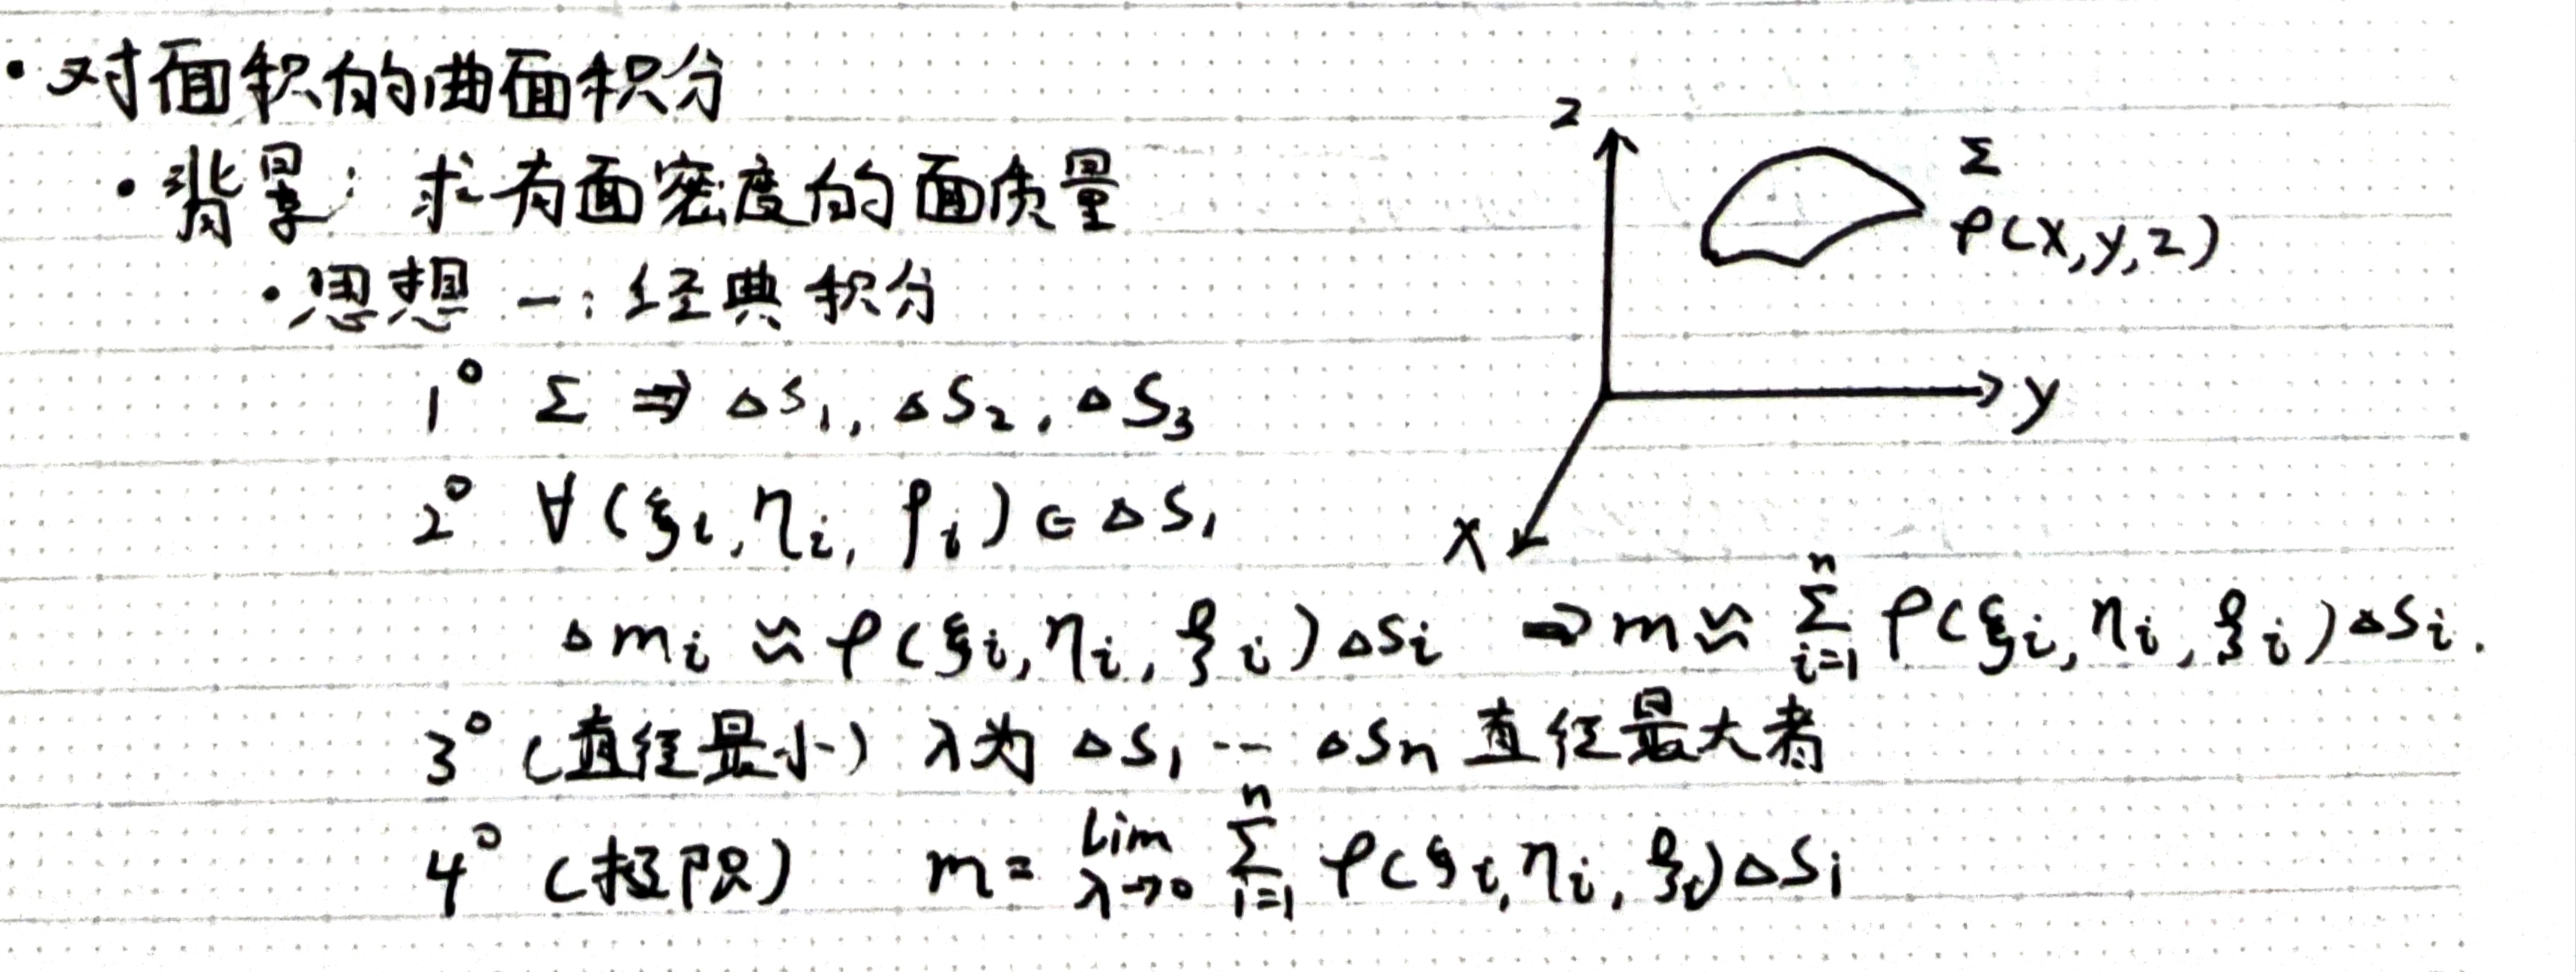 · 对面积的曲面积分
· 背景: 求有面密度的面质量
· 思想一: 经典积分
1° Σ ⇒ ΔS₁, ΔS₂, ΔS₃
2° ∀(ξᵢ, ηᵢ, ζᵢ) ∈ ΔS₁
Δmᵢ ≈ ρ(ξᵢ, ηᵢ, ζᵢ)ΔSᵢ ⇒ m ≈ Σᵢ₌₁ⁿ ρ(ξᵢ, ηᵢ, ζᵢ)ΔSᵢ.
3° (直径最小) λ为 ΔS₁ ··· ΔSₙ 直径最大者
4° (极限) m = lim λ→0 Σᵢ₌₁ⁿ ρ(ξᵢ, ηᵢ, ζᵢ)ΔSᵢ
z
Σ
ρ(x,y,z)
y
x